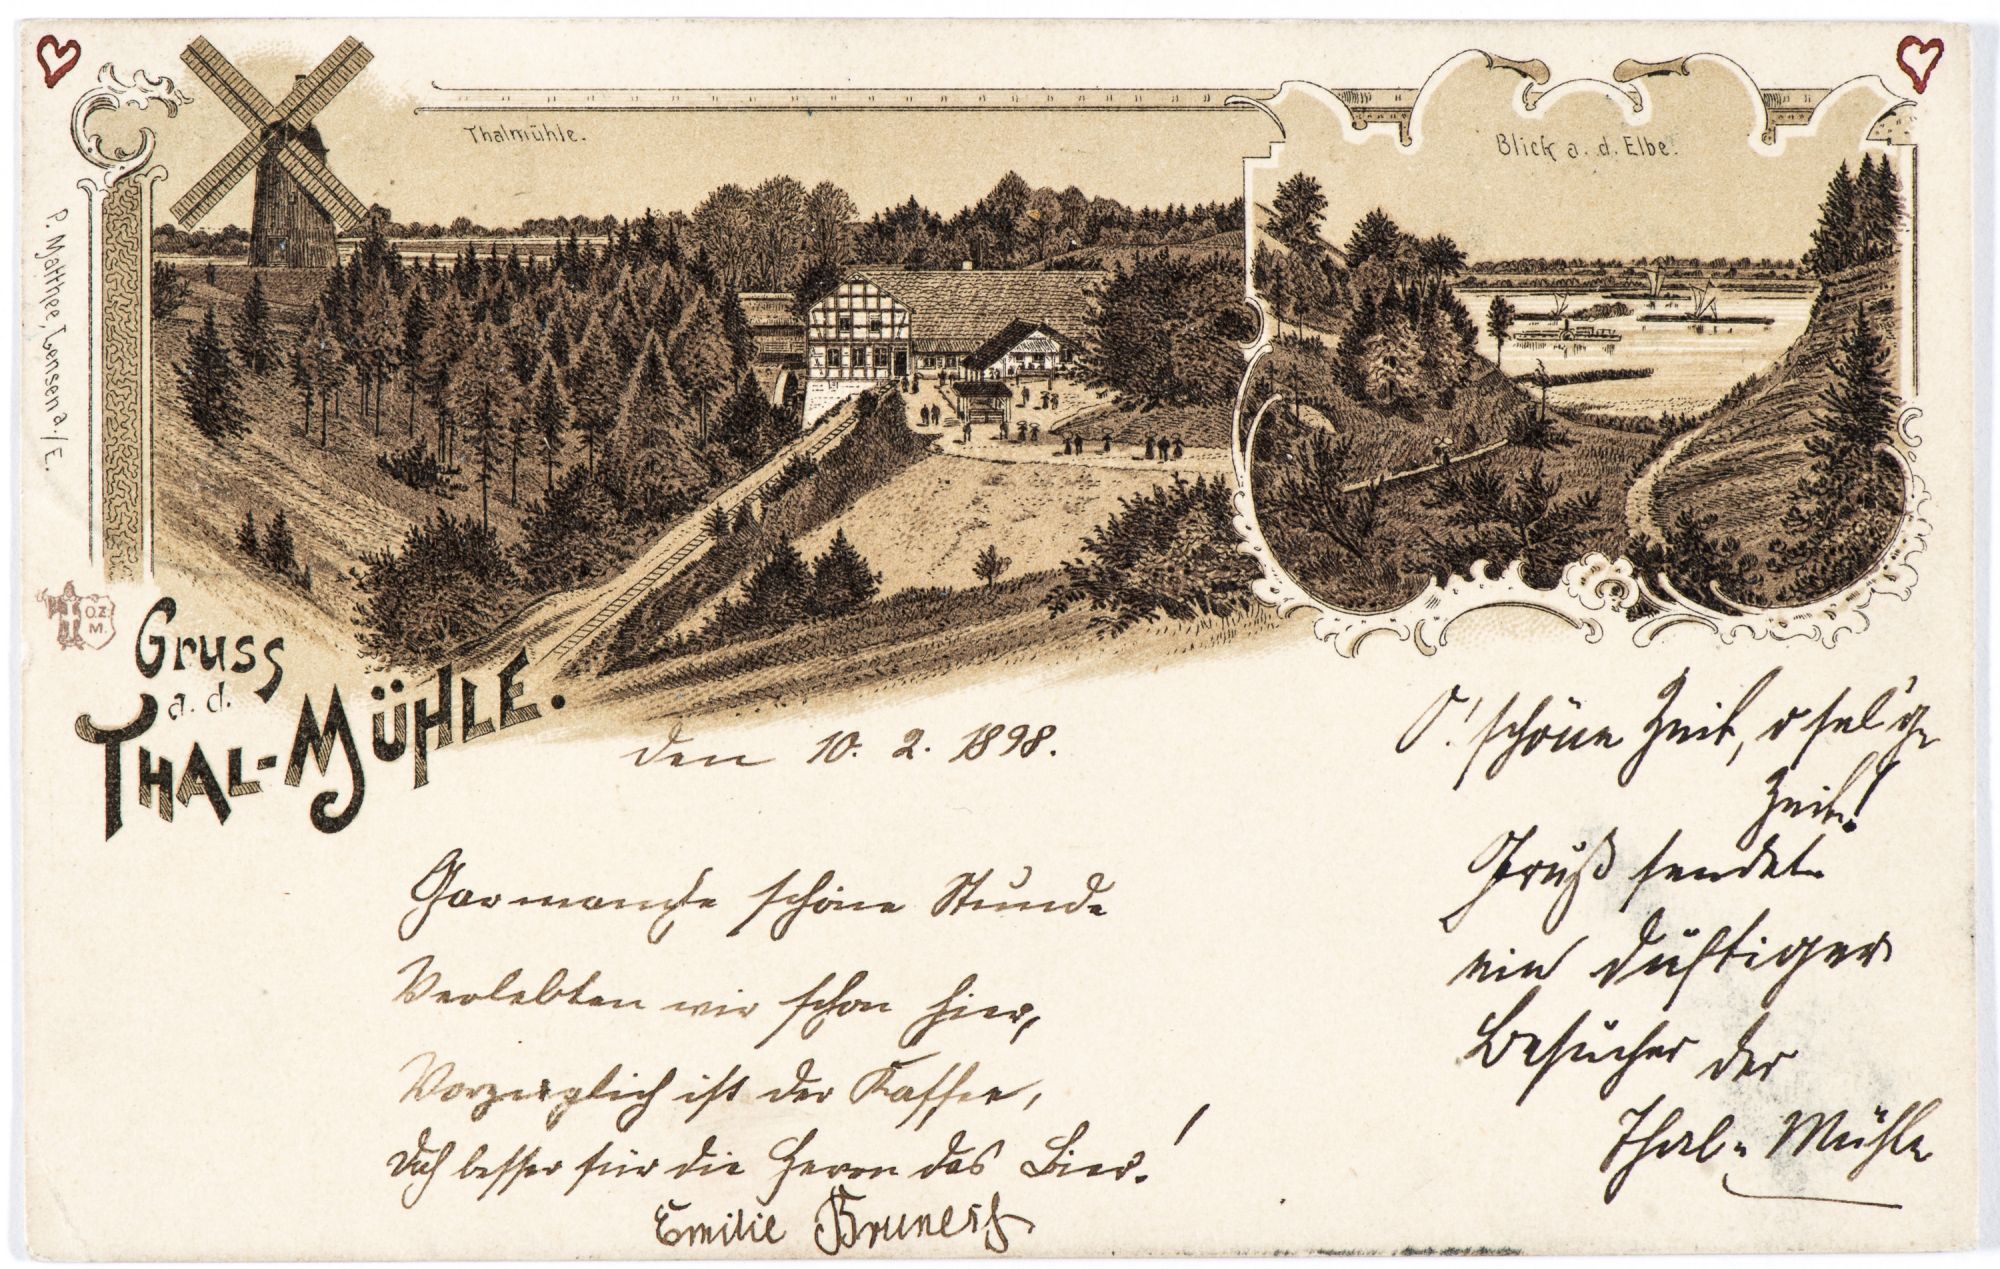 Thalmühle.
Blick a. d. Elbe.
P. Matthee, Lensen a./E.
O.Z.
M.
Gruss
a. d.
THAL-MÜHLE.
den 10. 2. 1898.
O! schöne Zeit, o sel'ge
Zeit!
Gruß sendet
ein duftiger
Besucher der
Thal-Mühle
Gar manche schöne Stunde
Verlebten wir schon hier,
Vorzüglich ist der Kaffee,
Doch besser für die Herren das Bier!
Emilie